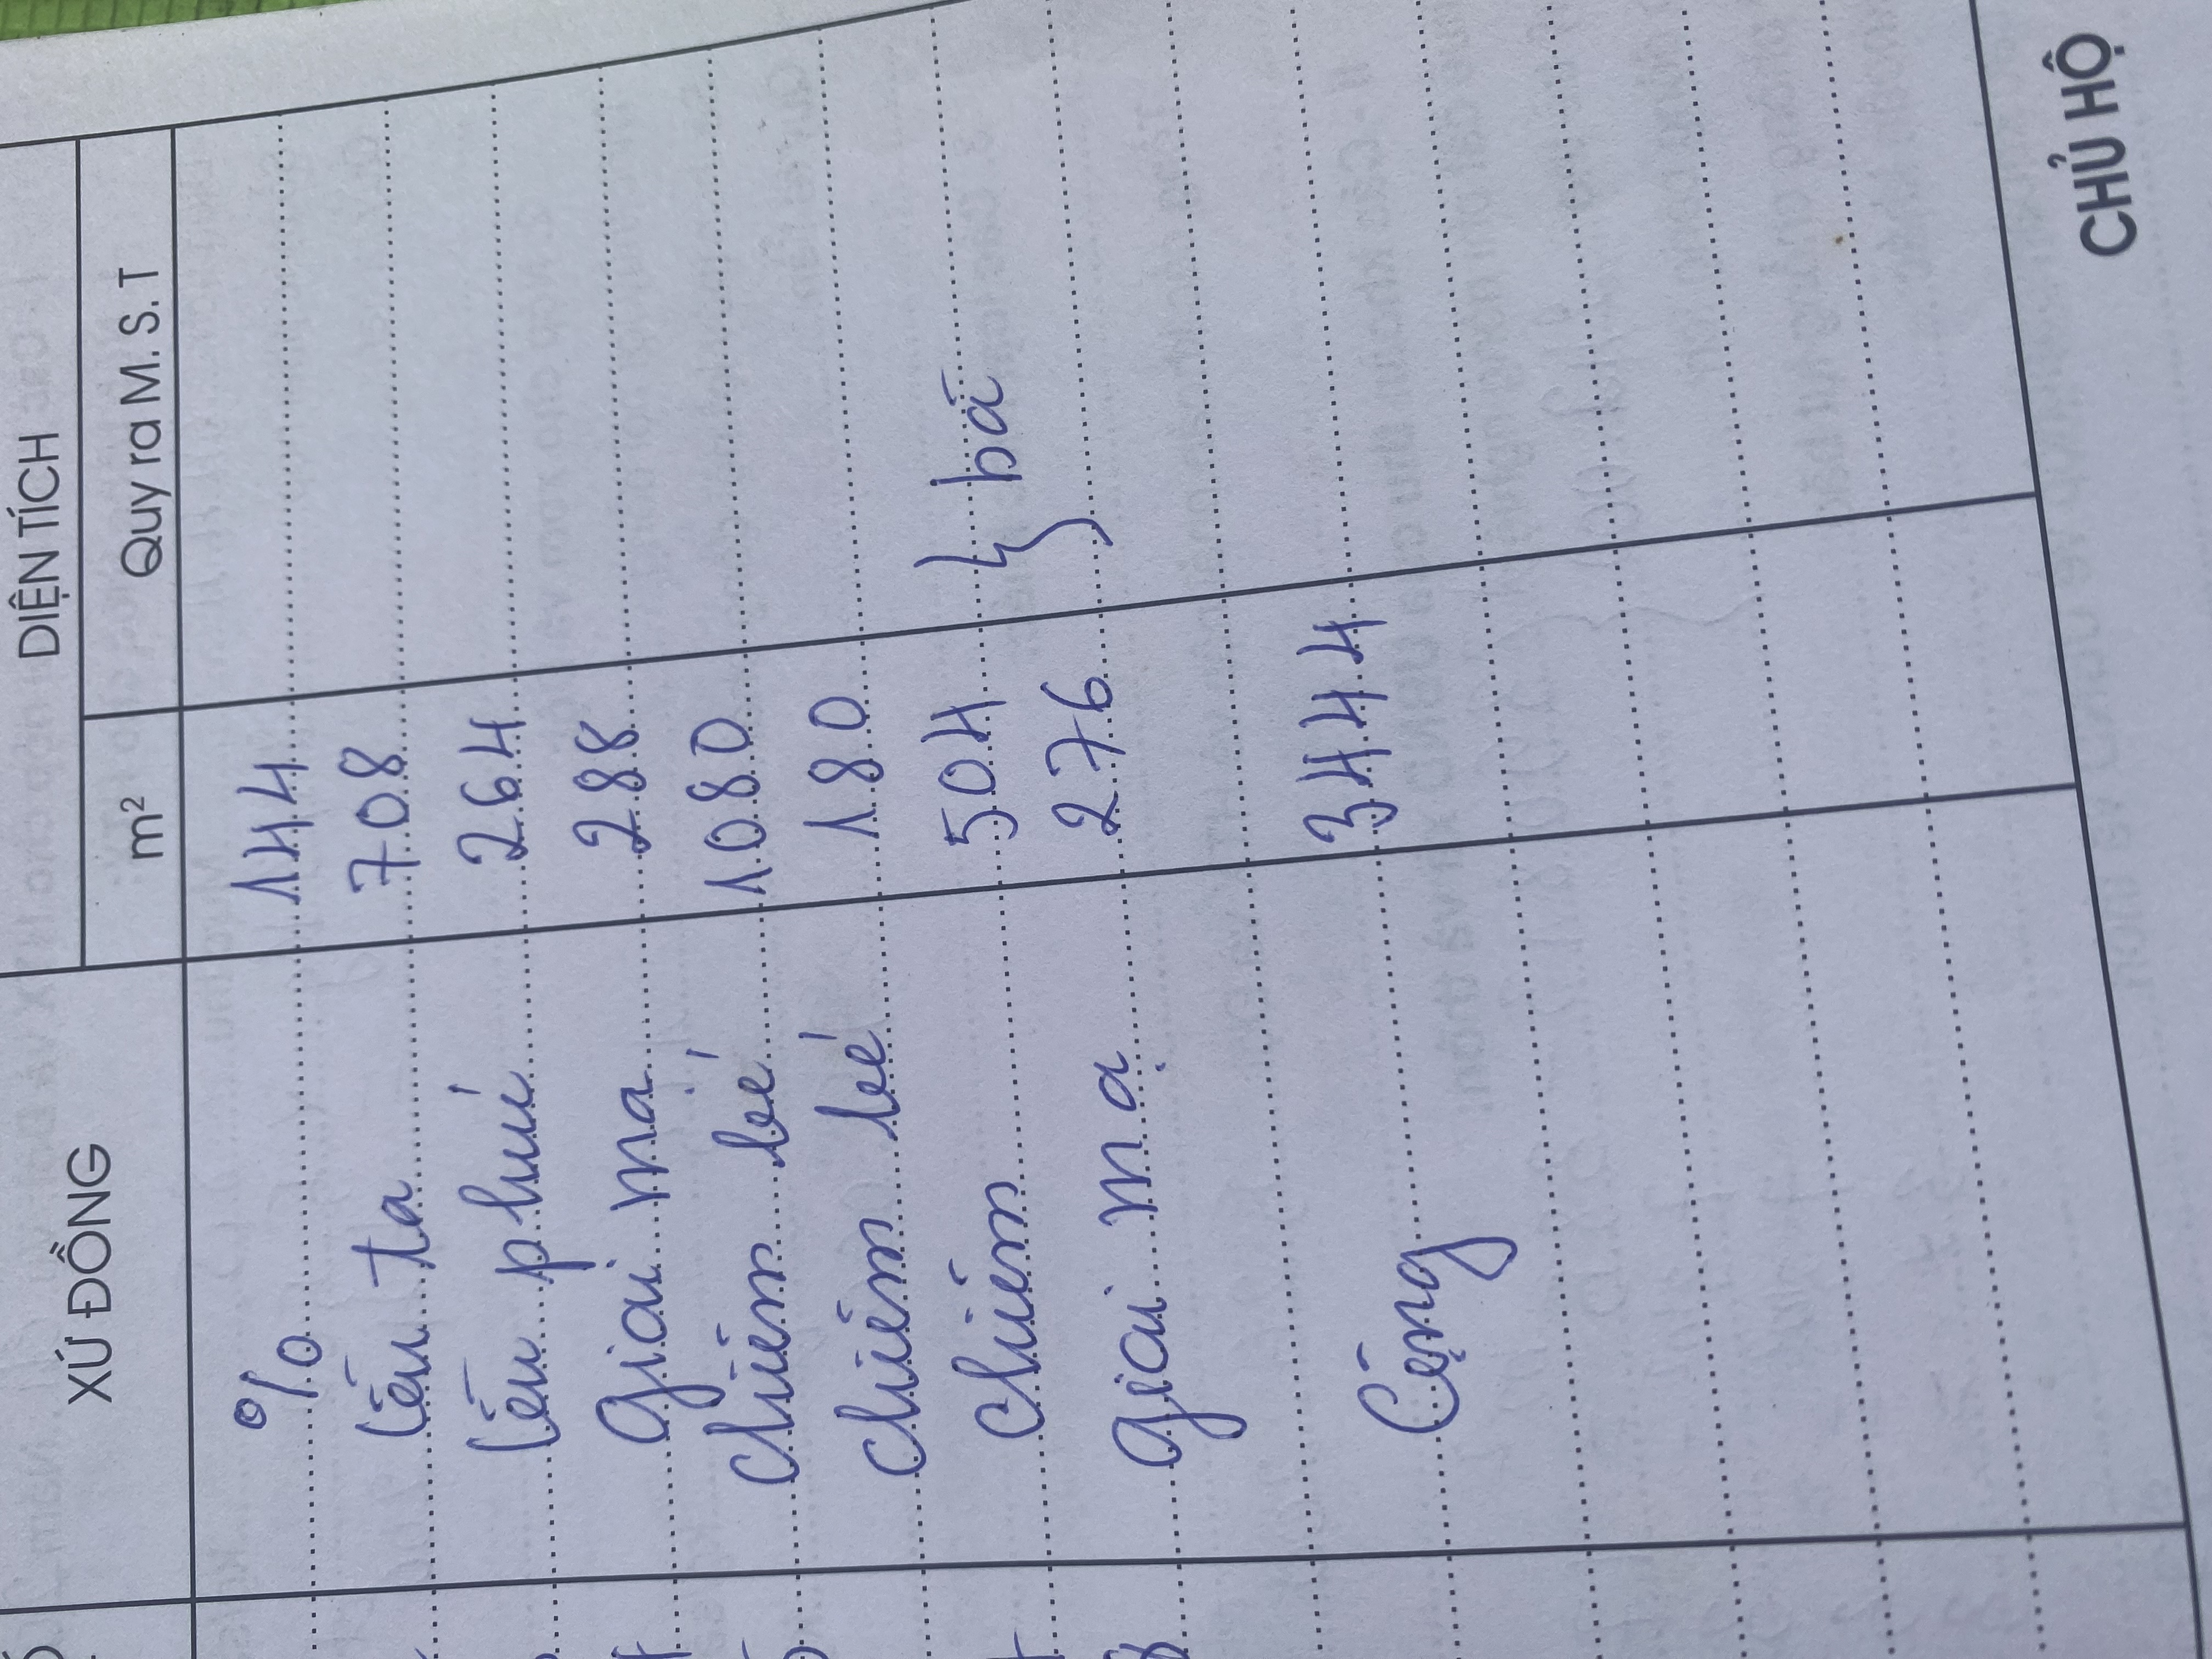 XỨ ĐỒNG DIỆN TÍCH
m² Quy ra M. S. T
% 144
Lều ta 708
Lều phú 264
Giai mạ 288
Chiêm bé 1080
Chiêm bé 180
Chiêm 504 } bá
Giai mạ 276
Cộng 3444
CHỦ HỘ